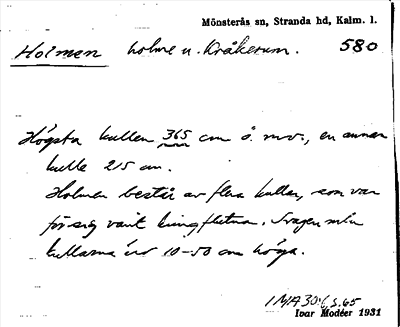 Mönsterås sn, Stranda hd, Kalm. l.
Holmen holme u. Kråkerum. 580
Högsta kullen 365 cm ö. mv., en annan
kulle 215 cm.
Holmen består av flera kullar, som var
för sig varit kringflutna.
kullarna är 10-50 cm höga.
IMA 30:6, S. 65
Ivar Modéer 1931